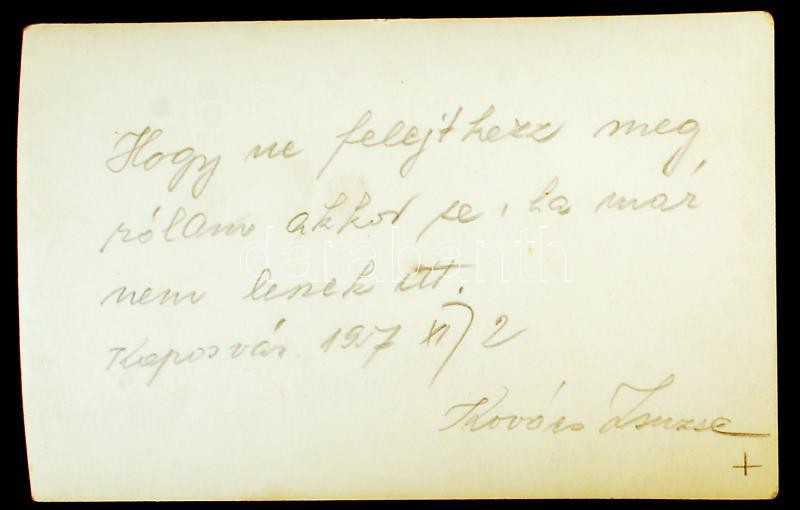 Hogy ne felejthezz meg
rólam akkor se, ha már
nem leszek itt.
Kaposvár XI) 2
Kovács Zsuzsa
+
darabanth